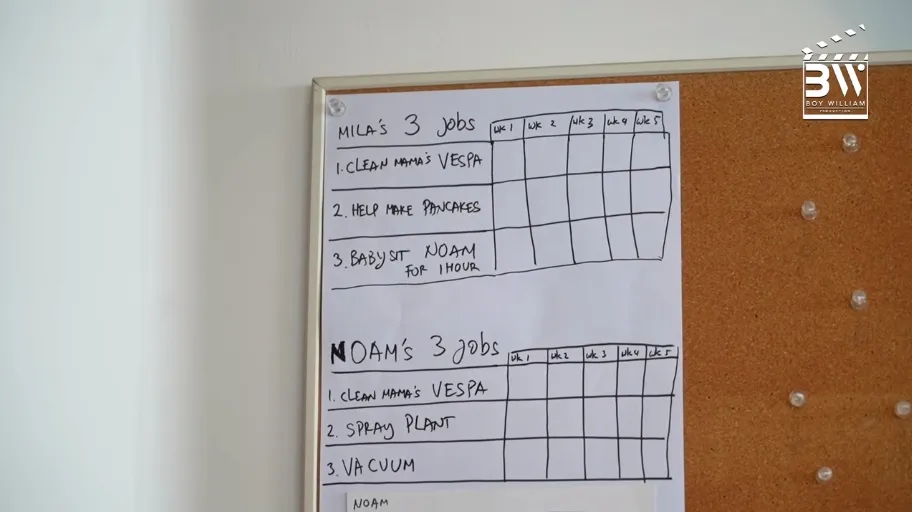 BW
BOY WILLIAM
PRODUCTION
MILA'S 3 JOBS
WK 1 WK 2 WK 3 WK 4 WK 5
1. CLEAN MAMA'S VESPA
2. HELP MAKE PANCAKES
3. BABYSIT NOAM
FOR 1 HOUR
NOAM'S 3 JOBS
WK 1 WK 2 WK 3 WK 4 WK 5
1. CLEAN MAMA'S VESPA
2. SPRAY PLANT
3. VACUUM
NOAM